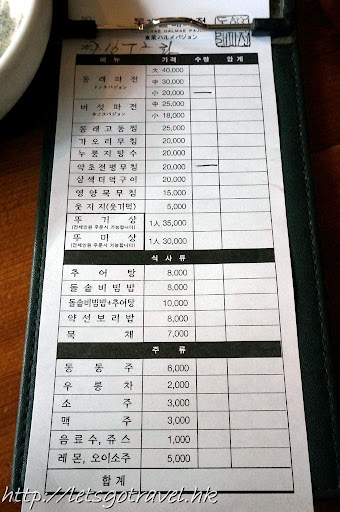 NAE HALMAE PAJ
東莱ハルメパジョン
메뉴 가격 수량 합계
동래파전 大 40,000
トンネパジョン 中 30,000
小 20,000 —
버섯파전 中 25,000
キノコパジョン 小 18,000
동래고동찜 25,000
가오리무침 25,000
누룽지탕수 20,000
약초전병무침 20,000 —
삼색더덕구이 20,000
영양묵무침 15,000
웃지지(웃기떡) 5,000
뚜기상 1人 35,000
(전체인원 주문시 가능합니다)
뚜미상 1人 30,000
(전체인원 주문시 가능합니다)
식사류
추어탕 8,000
돌솥비빔밥 8,000
돌솥비빔밥+추어탕 10,000
약선보리밥 8,000
묵채 7,000
주류
동동주 6,000
우롱차 2,000
소주 3,000
맥주 3,000
음료수, 쥬스 1,000
레몬, 오이소주 5,000
합계
http://letsgotravel.hk